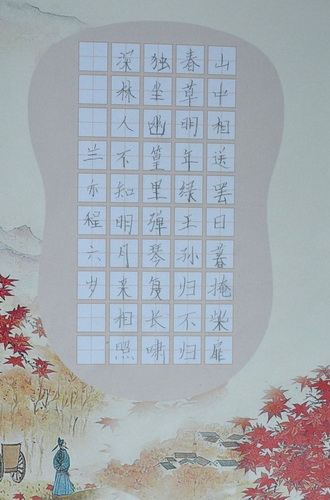 山中相送罢日暮掩柴扉
春草明年绿王孙归不归
独坐幽篁里弹琴复长啸
深林人不知明月来相照
兰亦程六岁